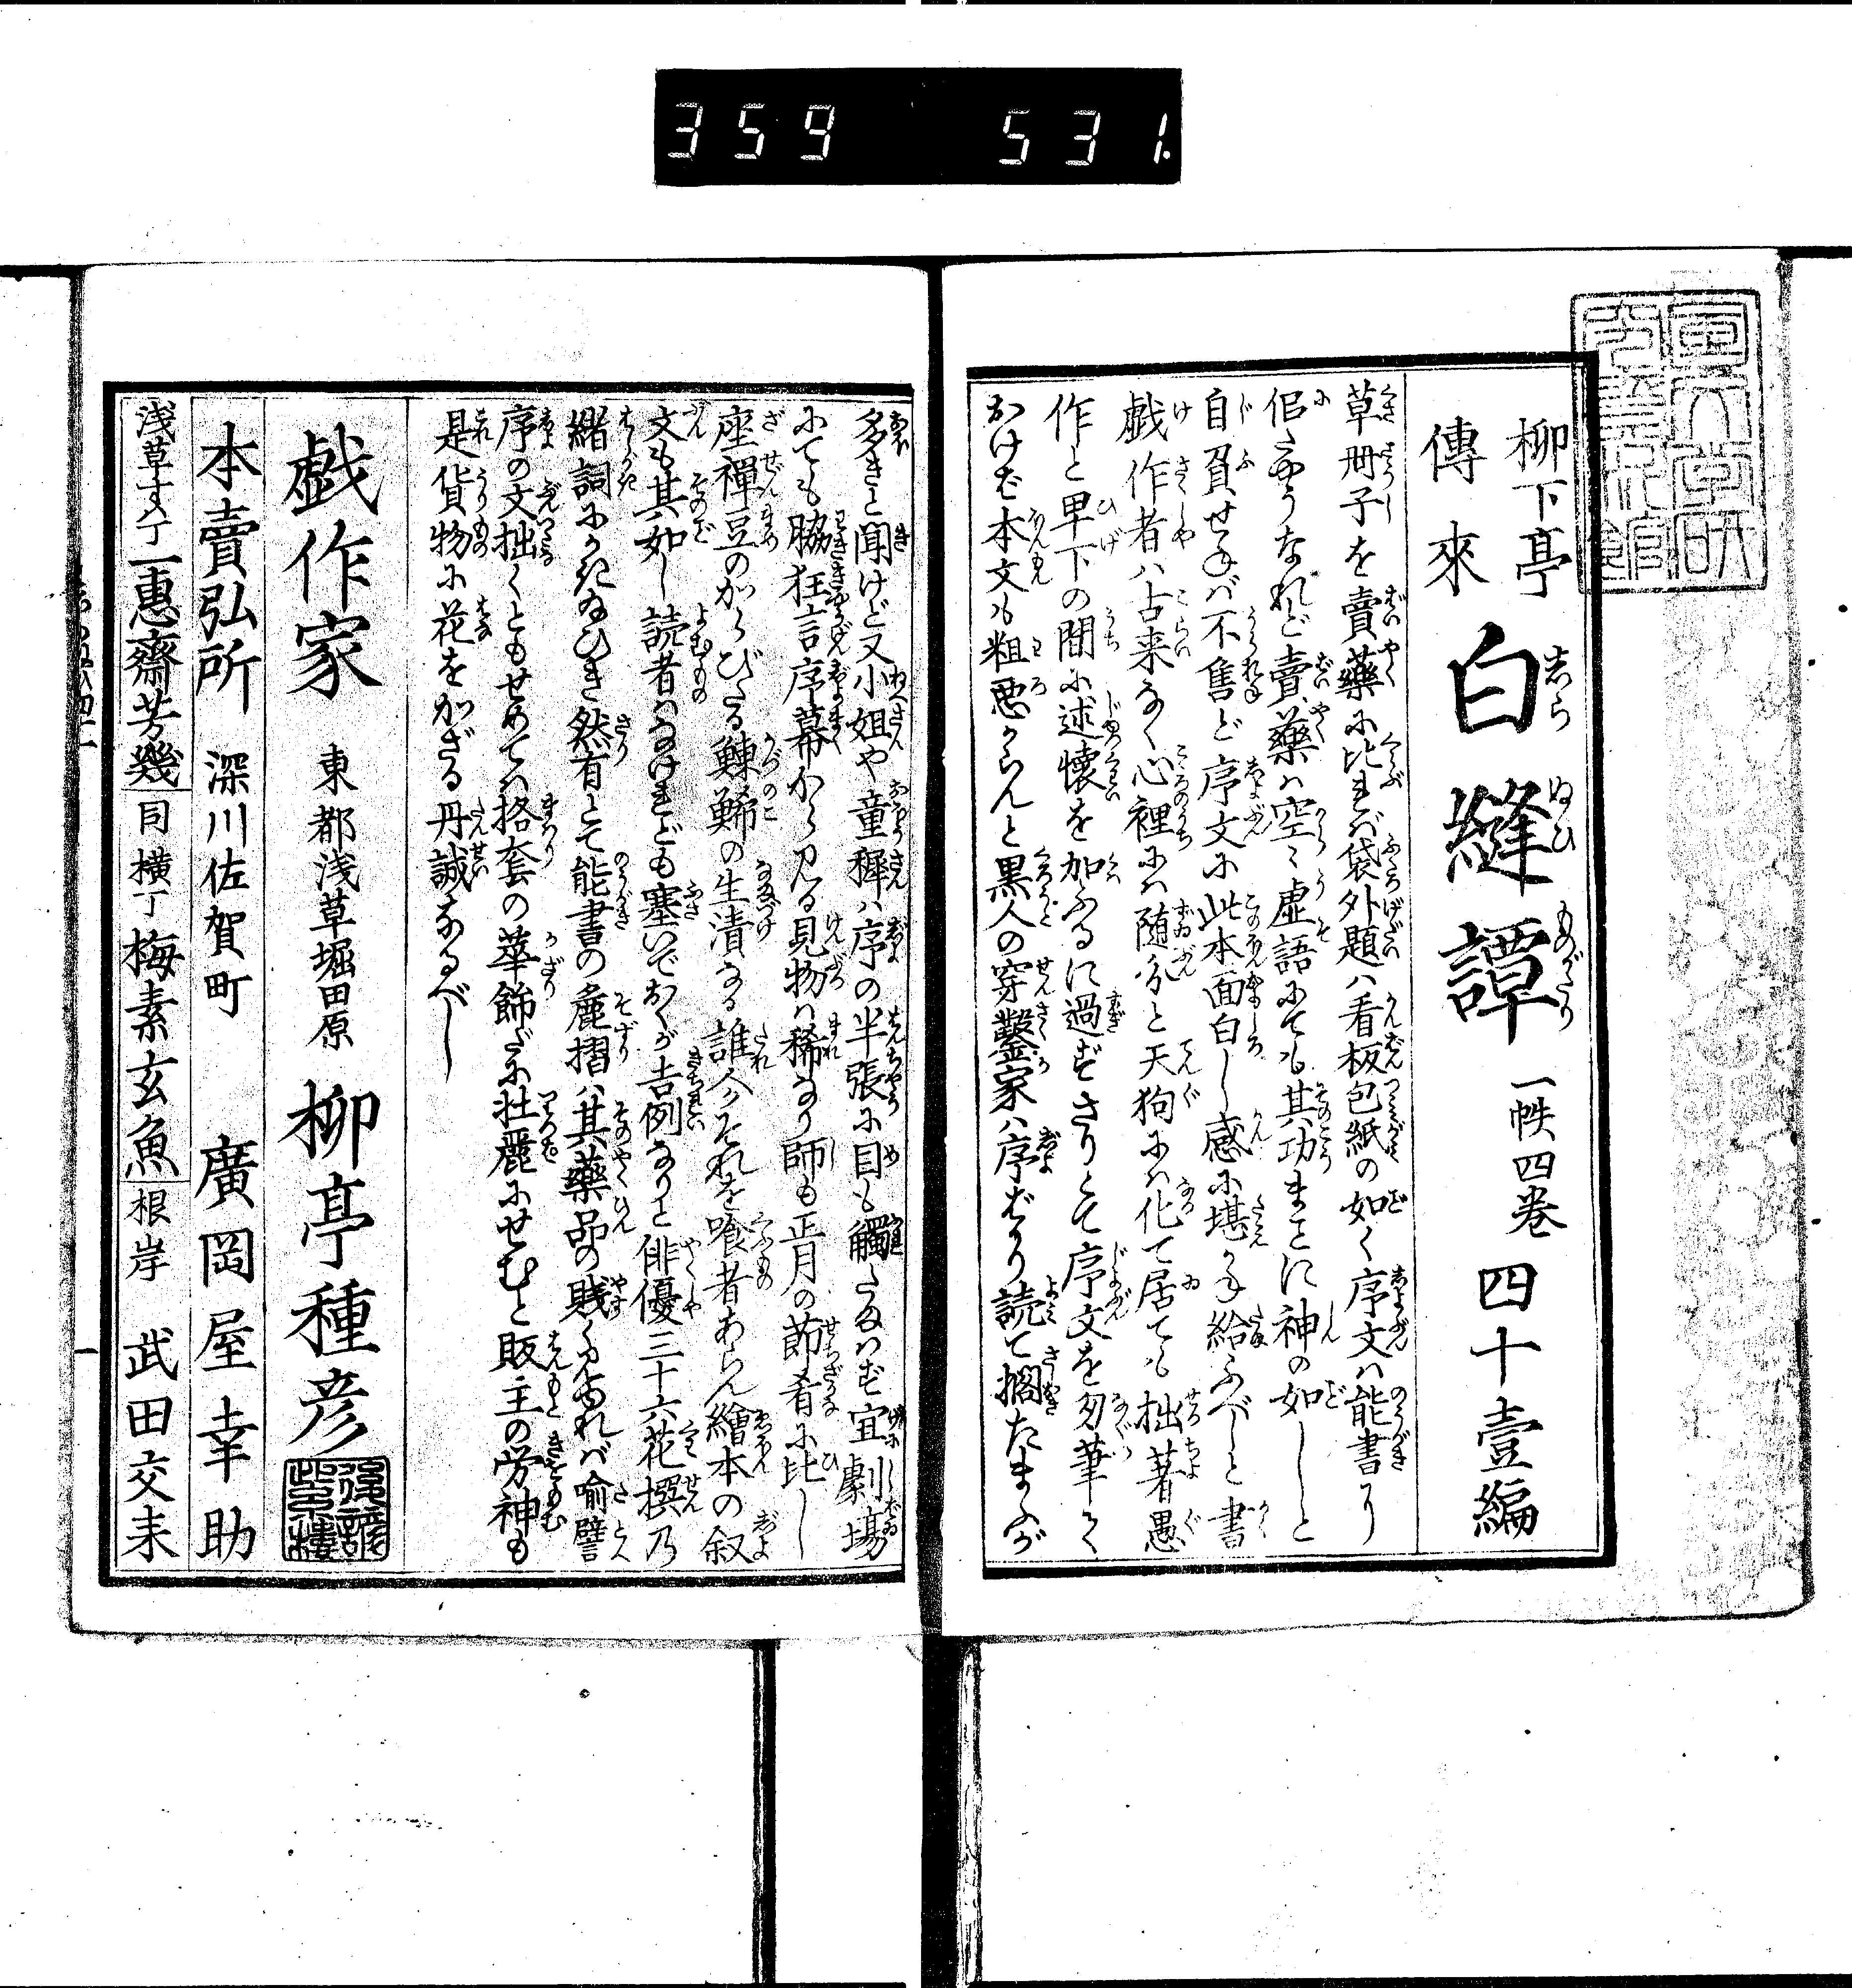 359 531.
柳下亭
傳來
白縫譚 一帙四巻 四十壹編
草冊子を賣藥に比れば袋外題ハ看板包紙の如く序文ハ能書なり
似たやうなれど賣藥ハ空〻虚語にても其功まことに神の如しと
自負せねバ不售ど序文に此本面白し感に堪かね給ふべしと書
戯作者ハ古来なく心裡にハ随分と天狗にハ化て居ても拙著愚
作と卑下の間に述懐を加ふるに過ずさりとて序文を匆筆く
おけば本文も粗悪からんと黒人の穿鑿家ハ序ばかり読て擱たまふが
多きと聞けど又小姐や童穉ハ序の半張に目も觸たまはず宜劇場
にても脇狂言序幕から見る見物ハ稀なり師も正月の節肴に比し
座禪豆のからびたる鰊鯑の生漬なる誰か今それを喰者あらん繪本の叙
文も其如し読者ハなけれども塞いでおくが吉例なりと俳優三十六花撰乃
緒詞にかきゐひき然有とて能書の麁摺ハ其藥品の賎くみゆれバ喩譬
序の文拙くともせめてハ袼套の華飾だに壮麗にせむと販主の労神も
是貨物に花をかざる丹誠なるべし
戯作家 東都浅草堀田原 柳亭種彦
本賣弘所 深川佐賀町 廣岡屋幸助
浅草 一惠齋芳幾
同横丁 梅素玄魚
根岸 武田交来